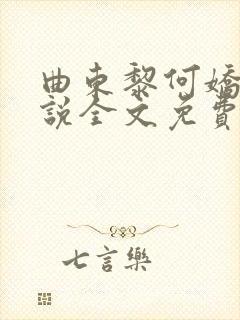 曲東黎何嬌
說全文免費
七言樂